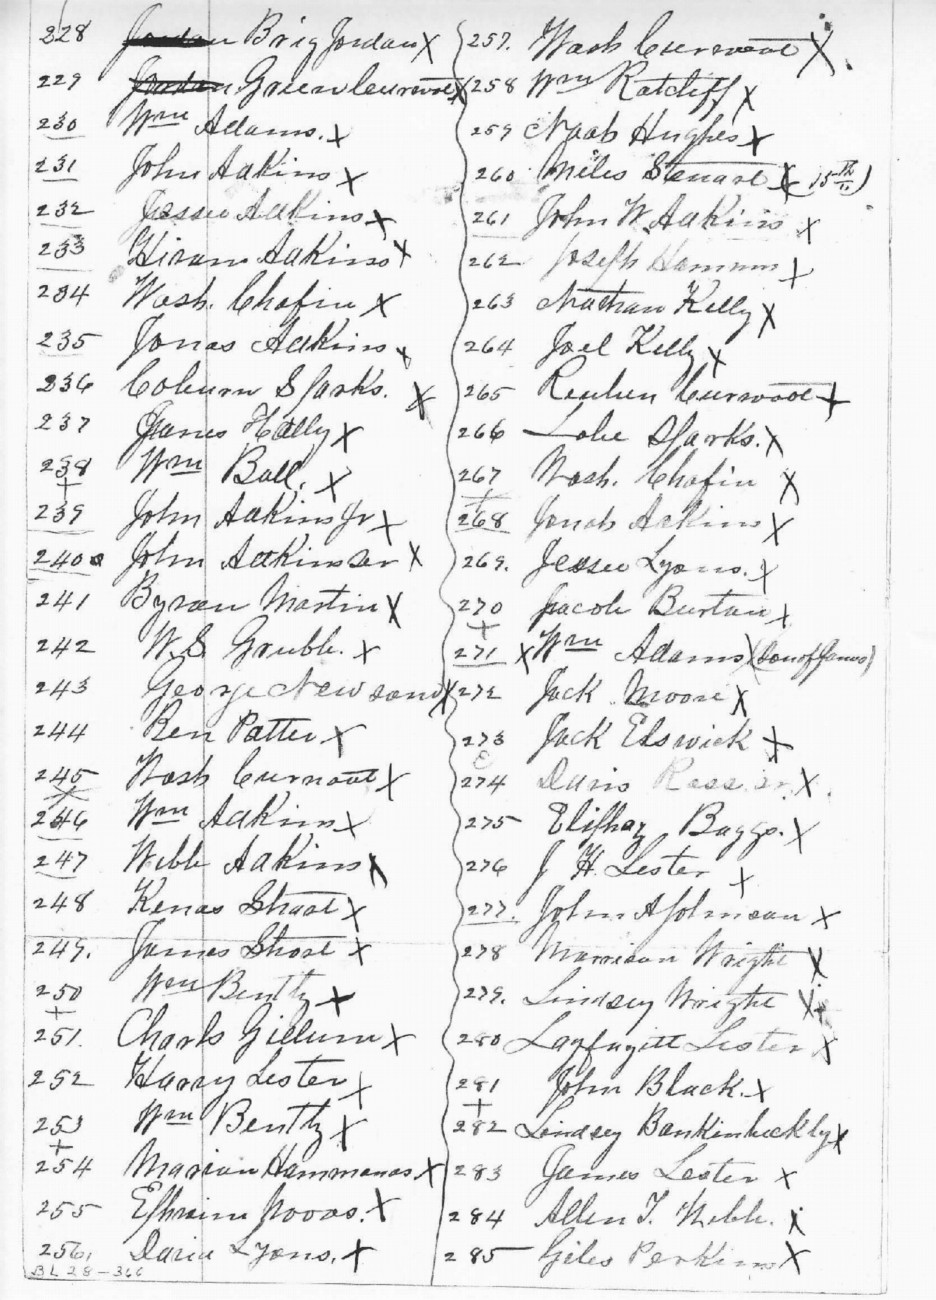 228 Jordan Brig Jordan X
229 Jordan Green Curnoot X
230 Wm Adams. X
231 John Adkins X
232 Jesse Adkins X
233 Hiram Adkins X
234 Wash. Chafin X
235 Jonas Adkins X
236 Coburn Sparks. X
237 James Kelly X
238 Wm Ball. X
239 John Adkins Jr X
240 John Adkins sr X
241 Byram Martin X
242 W. S. Grubb. X
243 George Newsom X
244 Ben Patter X
245 Wash Curnoot X
246 Wm Adkins X
247 Webb Adkins X
248 Kenas Shoat X
249. James Shoat X
250 Wm Bentty X
251. Charls Gillum X
252 Harry Lester X
253 Wm Bentty X
254 Marion Hammonds X
255 Ephraim X
256. David Lyons. X
BL 28-366
257. Wash Curnoot X
258 Wm Ratcliff X
259 Noah Hughes X
260 Miles X (15th)
261 John W. Adkins X
262 Joseph Hammon X
263 Nathan Kelly X
264 Joel Kelly X
265 Reuben Curnoot X
266 Sparks. X
267 Wash. Chafin X
268 Jonas Adkins X
269. Jessee Lyons. X
270 Jacob Burtan X
271 X Wm Adams X (Son of James)
272 Jack Moore X
273 Jack Elswick X
274 Davis Ross sr. X
275 Eliphaz Baggs. X
276 J H. Lester X
277. John A Johnson X
278 Marrison Wright X
279. Lindsey Wright X
280 Layfayitt Lester X
281 John Black. X
282 Lindsey Bankinbuckly X
283 James Lester X
284 Allen T. Webb. X
285 Giles Perkins X